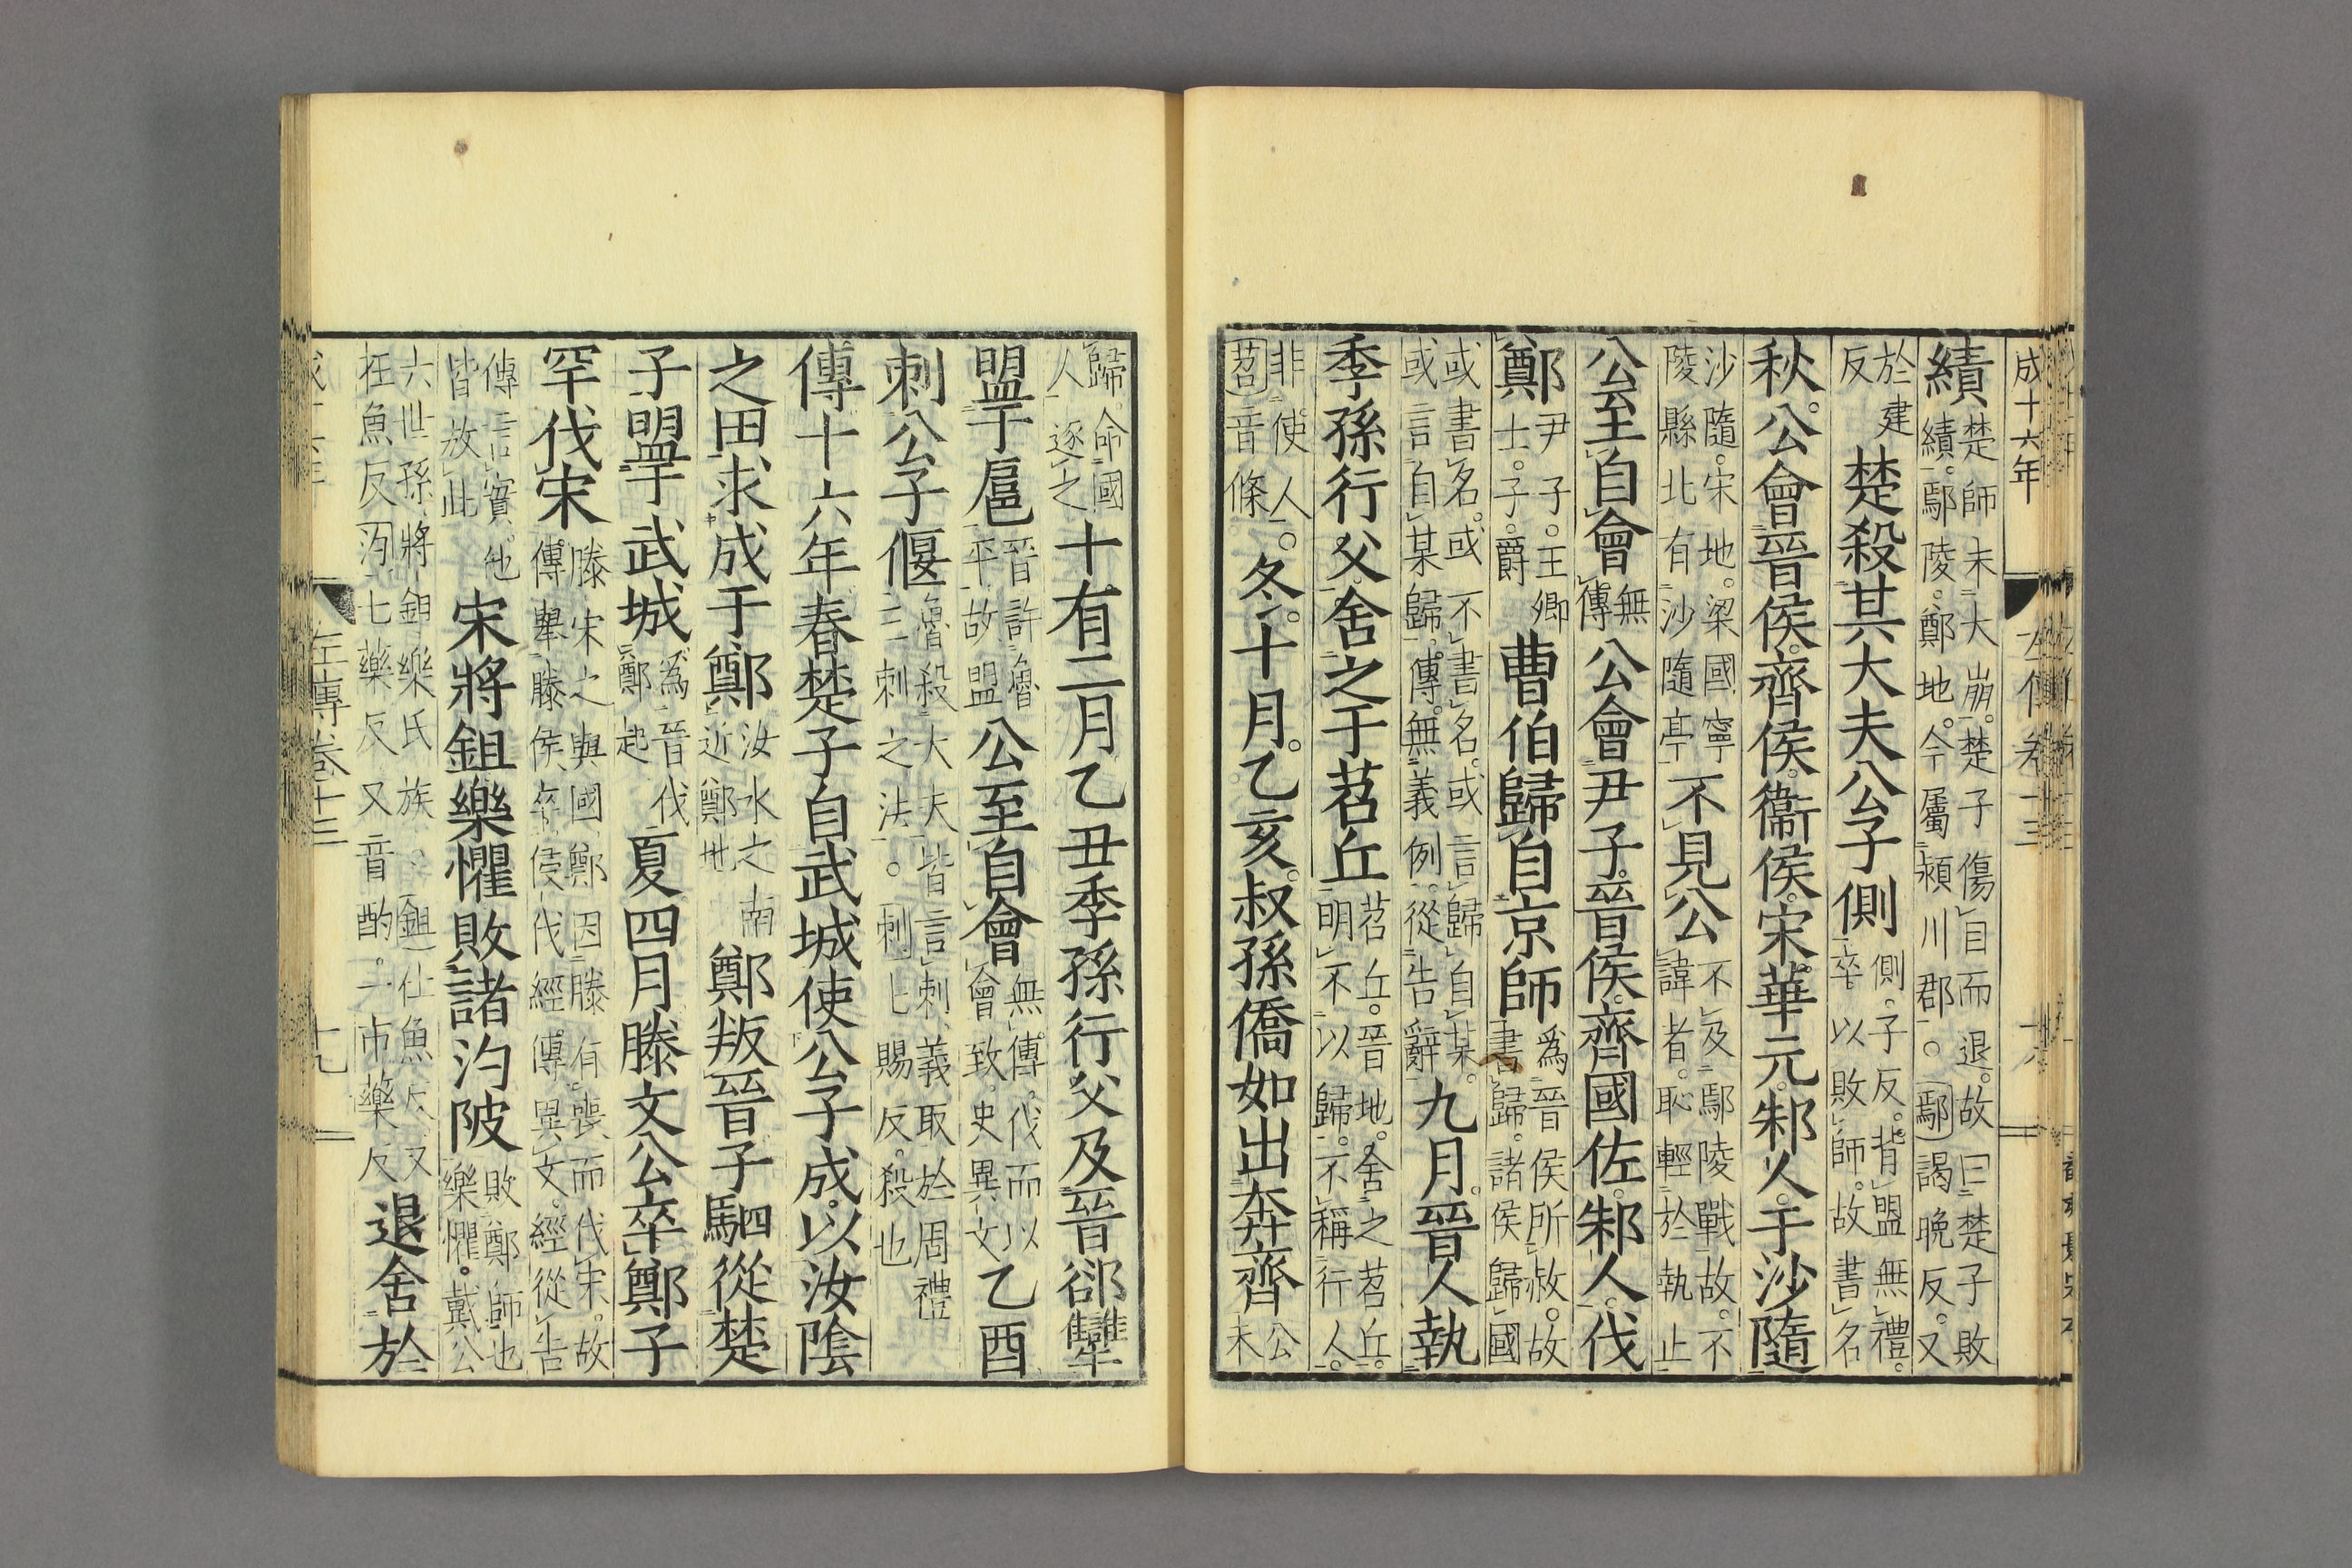 成十六年
左傳卷十三
十八
績楚師未大崩。楚子傷目而退。故曰楚子敗績。鄢陵。鄭地。今屬潁川郡。○鄢謁晚反。又
於建反楚殺其大夫公子側側。子反。背盟無禮。卒以敗師。故書名
秋。公會晉侯。齊侯。衞侯。宋華元。邾人。于沙隨
沙隨。宋地。梁國寧陵縣北有沙隨亭不見公不及鄢陵戰故。不諱者。恥輕於執止
公至自會無傳公會尹子。晉侯。齊國佐。邾人。伐
鄭尹子。王卿士。子。爵曹伯歸自京師爲晉侯所赦。故書歸。諸侯歸國
或書名。或不書名。或言歸自某。或言自某歸。傳無義例。從告辭九月。晉人執
季孫行父。舍之于苕丘苕丘。晉地。舍之苕丘。明不以歸。不稱行人。
非使人。○苕音條冬。十月。乙亥。叔孫僑如出奔齊公未
歸。命國人逐之十有二月乙丑季孫行父及晉郤犫
盟于扈晉許魯平故盟公至自會無傳。伐而以會致。史異文乙酉
刺公子偃魯殺大夫皆言刺義取於周禮三刺之法。○刺七賜反。殺也
傳十六年春楚子自武城使公子成以汝陰
之田求成于鄭汝水之南近鄭地鄭叛晉子駟從楚
子盟于武城爲晉伐鄭起夏四月滕文公卒鄭子
罕伐宋滕宋之與國鄭因滕有喪而伐宋故傳舉滕侯卒侵伐經傳異文。經從告
傳言實他皆放此宋將鉏樂懼敗諸汋陂敗鄭師也樂懼。戴公
六世孫將鉏樂氏族○鉏仕魚反又在魚反汋七藥反又音酌。一市藥反退舍於
左傳卷十三
十九